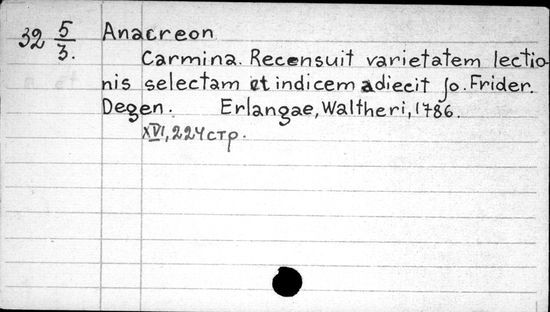 32 5/3. Anacreon
Carmina. Recensuit varietatem lectio-
nis selectam et indicem adiecit Jo. Frider.
Degen. Erlangae, Waltheri, 1786.
XVI, 224 стр.